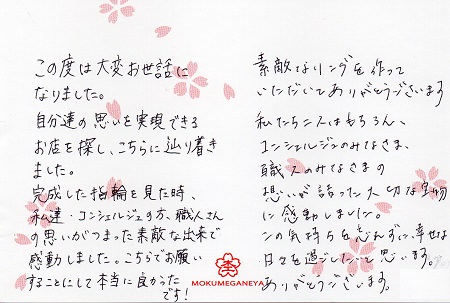 この度は大変お世話に
なりました。
自分達の思いを実現できる
お店を探し、こちらに辿り着き
ました。
完成した指輪を見た時、
私達・コンシェルジュの方、職人さん
の思いがつまった素敵な出来で
感動しました。こちらでお願い
することにして本当に良かった
です!
素敵なリングを作って
いただいてありがとうございます
私たち二人はもちろん、
コンシェルジュのみなさま、
職人のみなさまの
想いが詰った大切な宝物
に感動しました。
この気持ちを忘れずに、幸せな
日々を過ごしたいと思います。
ありがとうございます。
MOKUMEGANEYA